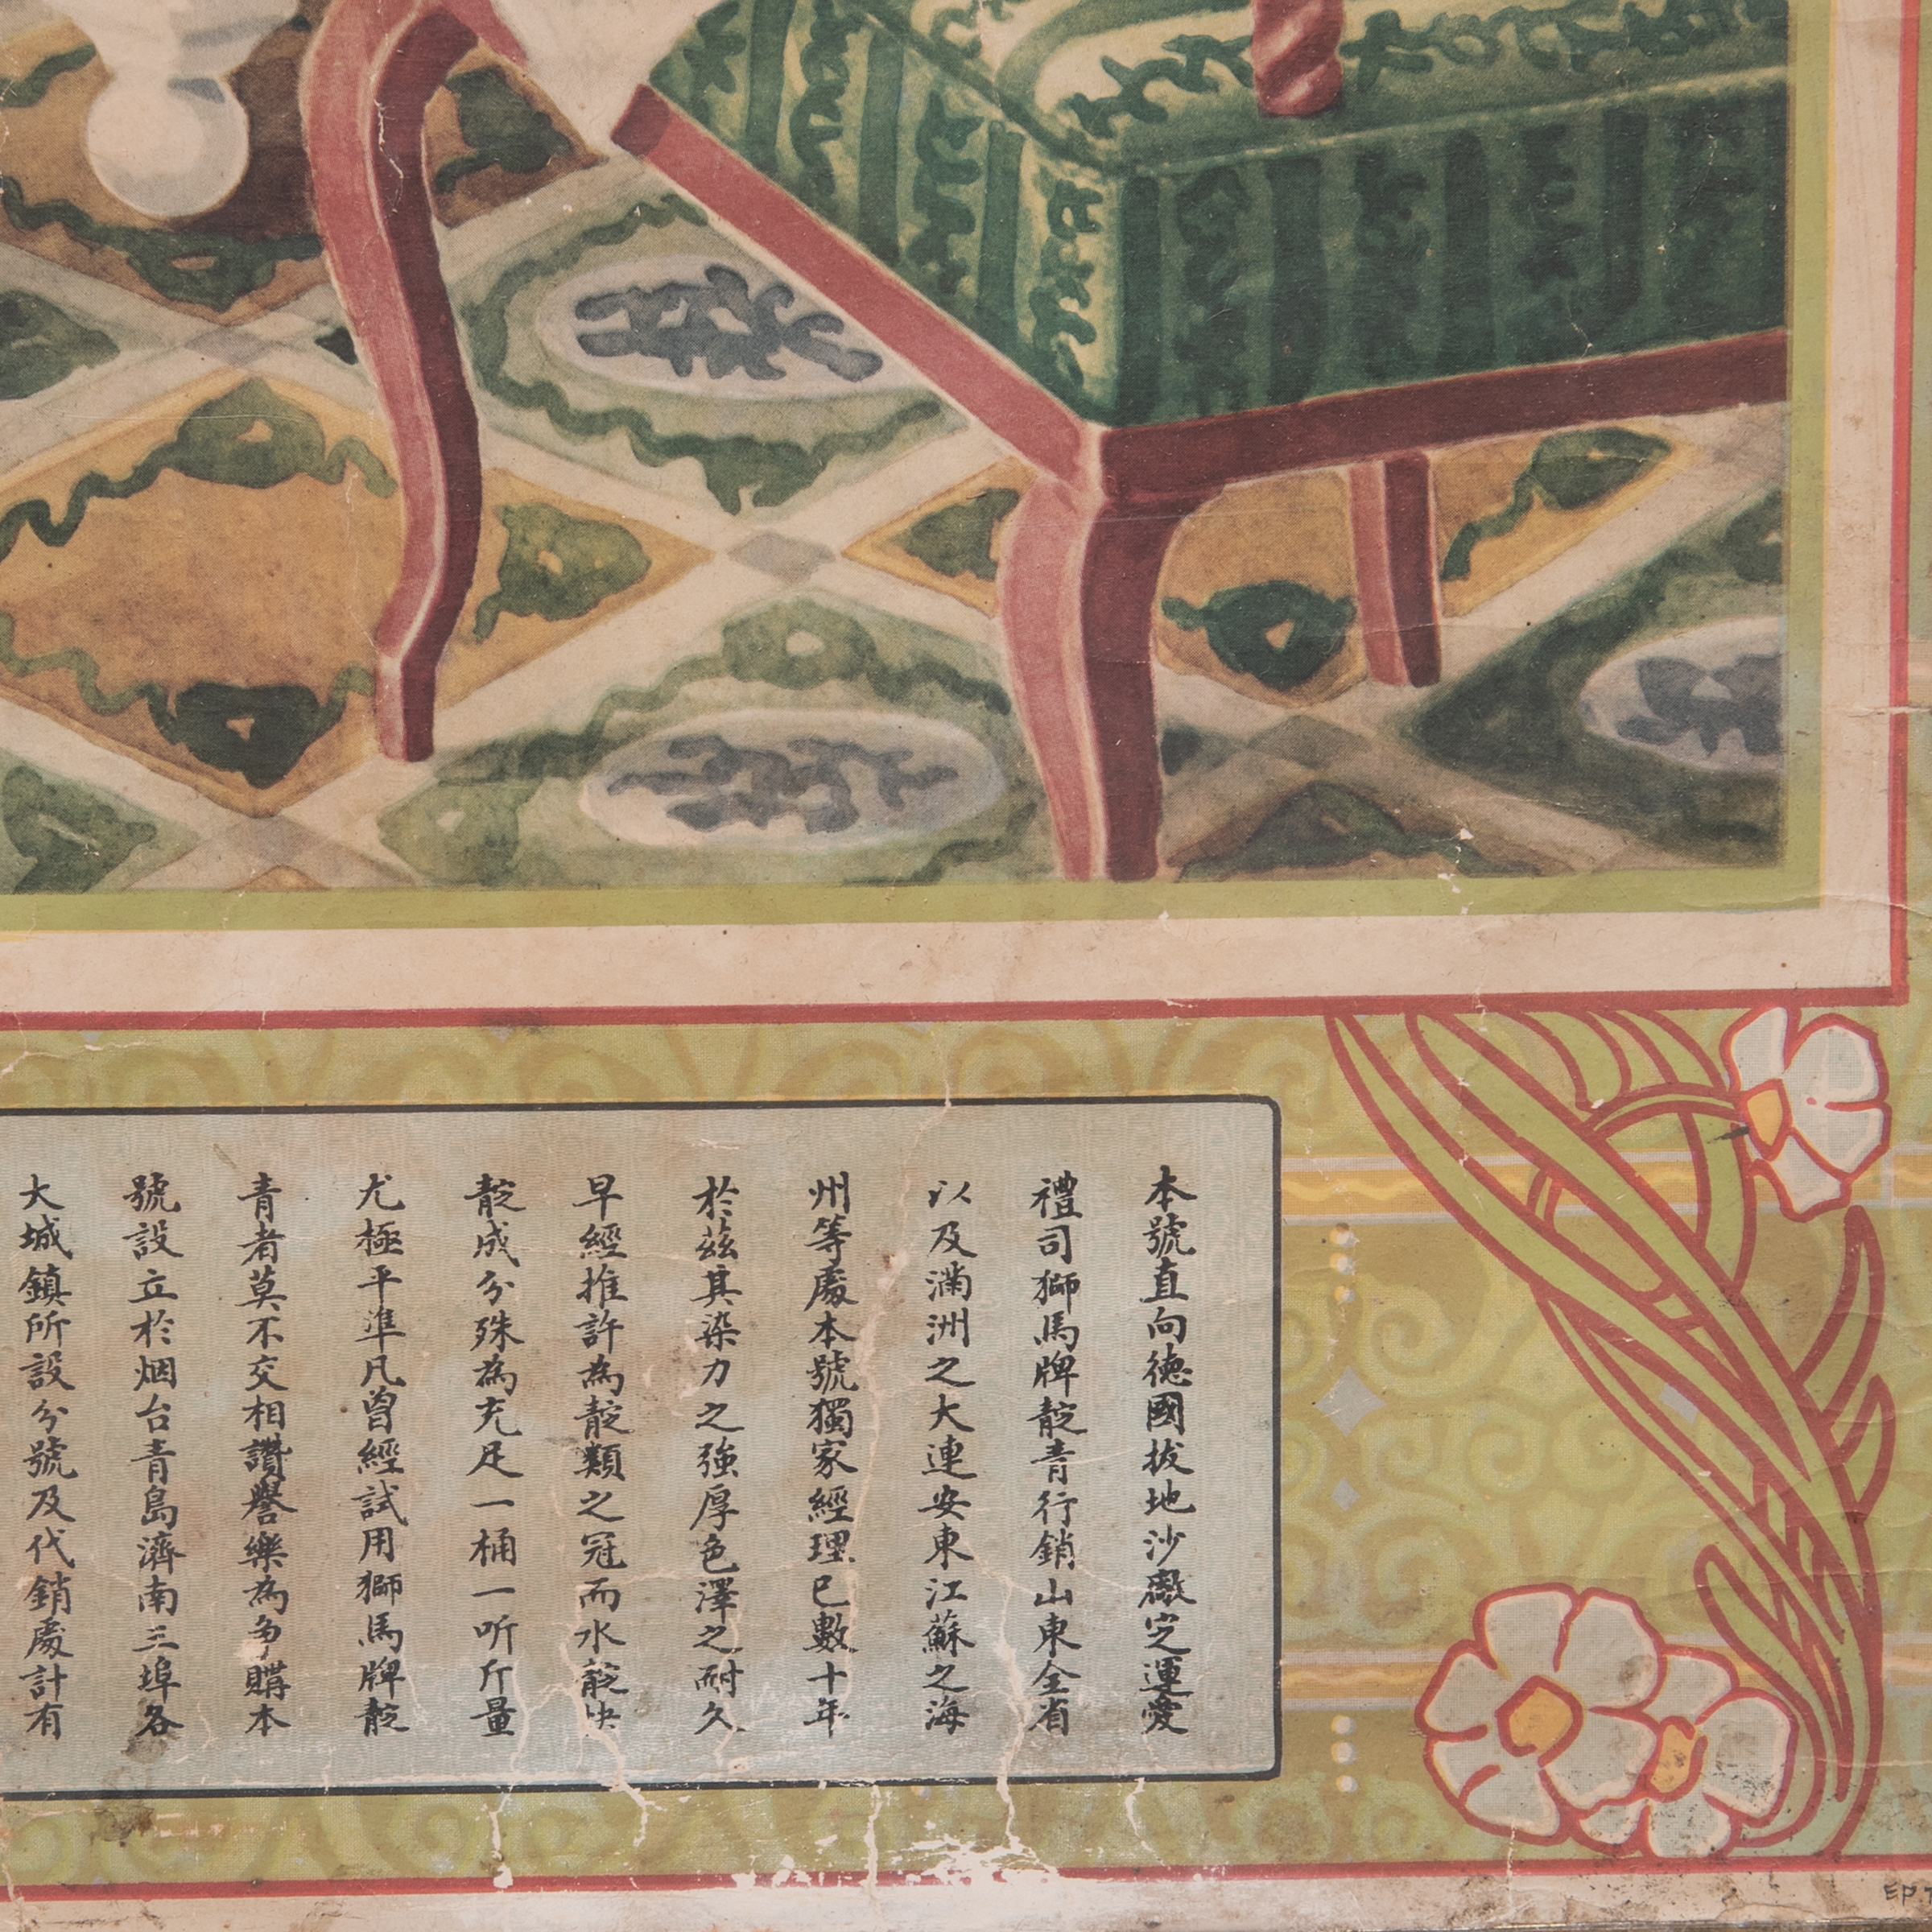 本號直向德國拔地沙厰定運愛
禮司獅馬牌靛青行銷山東全省
以及滿洲之大連安東江蘇之海
州等處本號獨家經理已數十年
於兹其染力之強厚色澤之耐久
早經推許為靛類之冠而水靛快
靛成分殊為充足一桶一听斤量
尤極平準凡曾經試用獅馬牌靛
青者莫不交相讚譽樂為争購本
號設立於烟台青島濟南三埠各
大城鎮所設分號及代銷處計有